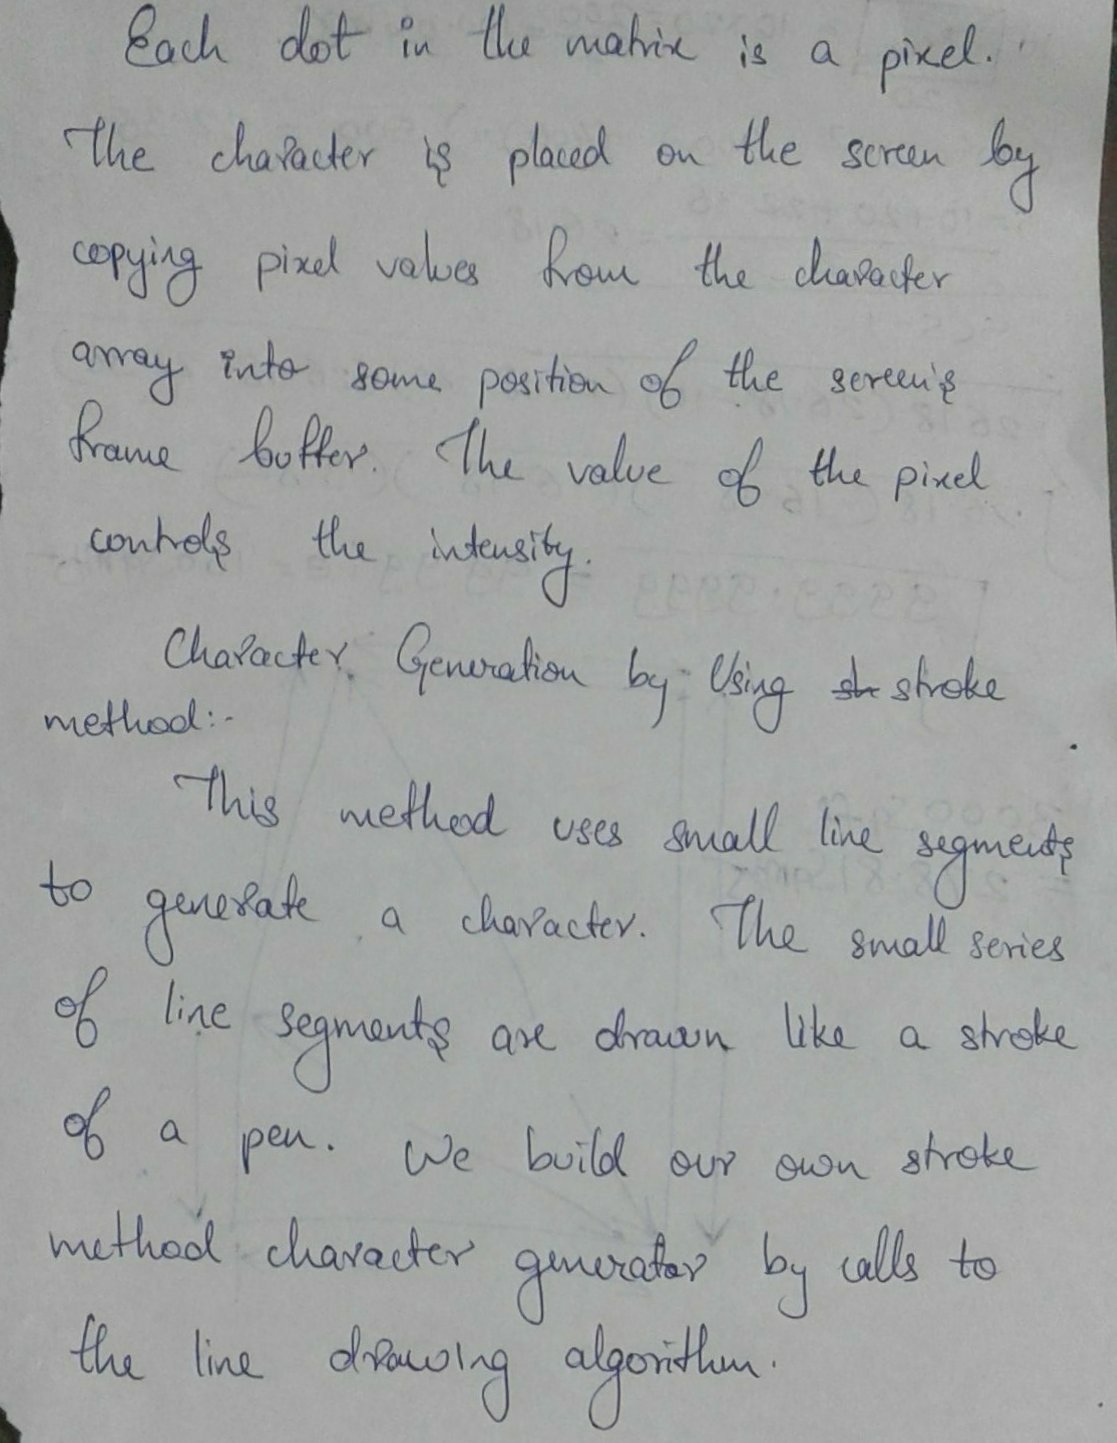 Each dot in the matrix is a pixel.
The character is placed on the screen by
copying pixel values from the character
array into some position of the screen's
frame buffer. The value of the pixel
controls the intensity.
Character Generation by Using stroke
method:-
This method uses small line segments
to generate a character. The small series
of line segments are drawn like a stroke
of a pen. We build our own stroke
method character generator by calls to
the line drawing algorithm.